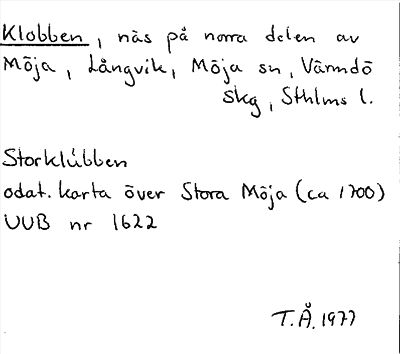 Klobben, näs på norra delen av
Möja, Långvik, Möja sn, Värmdö
skg, Sthlms l.
Storklúbben
odat. karta över Stora Möja (ca 1700)
UUB nr 1622
T.Å. 1977